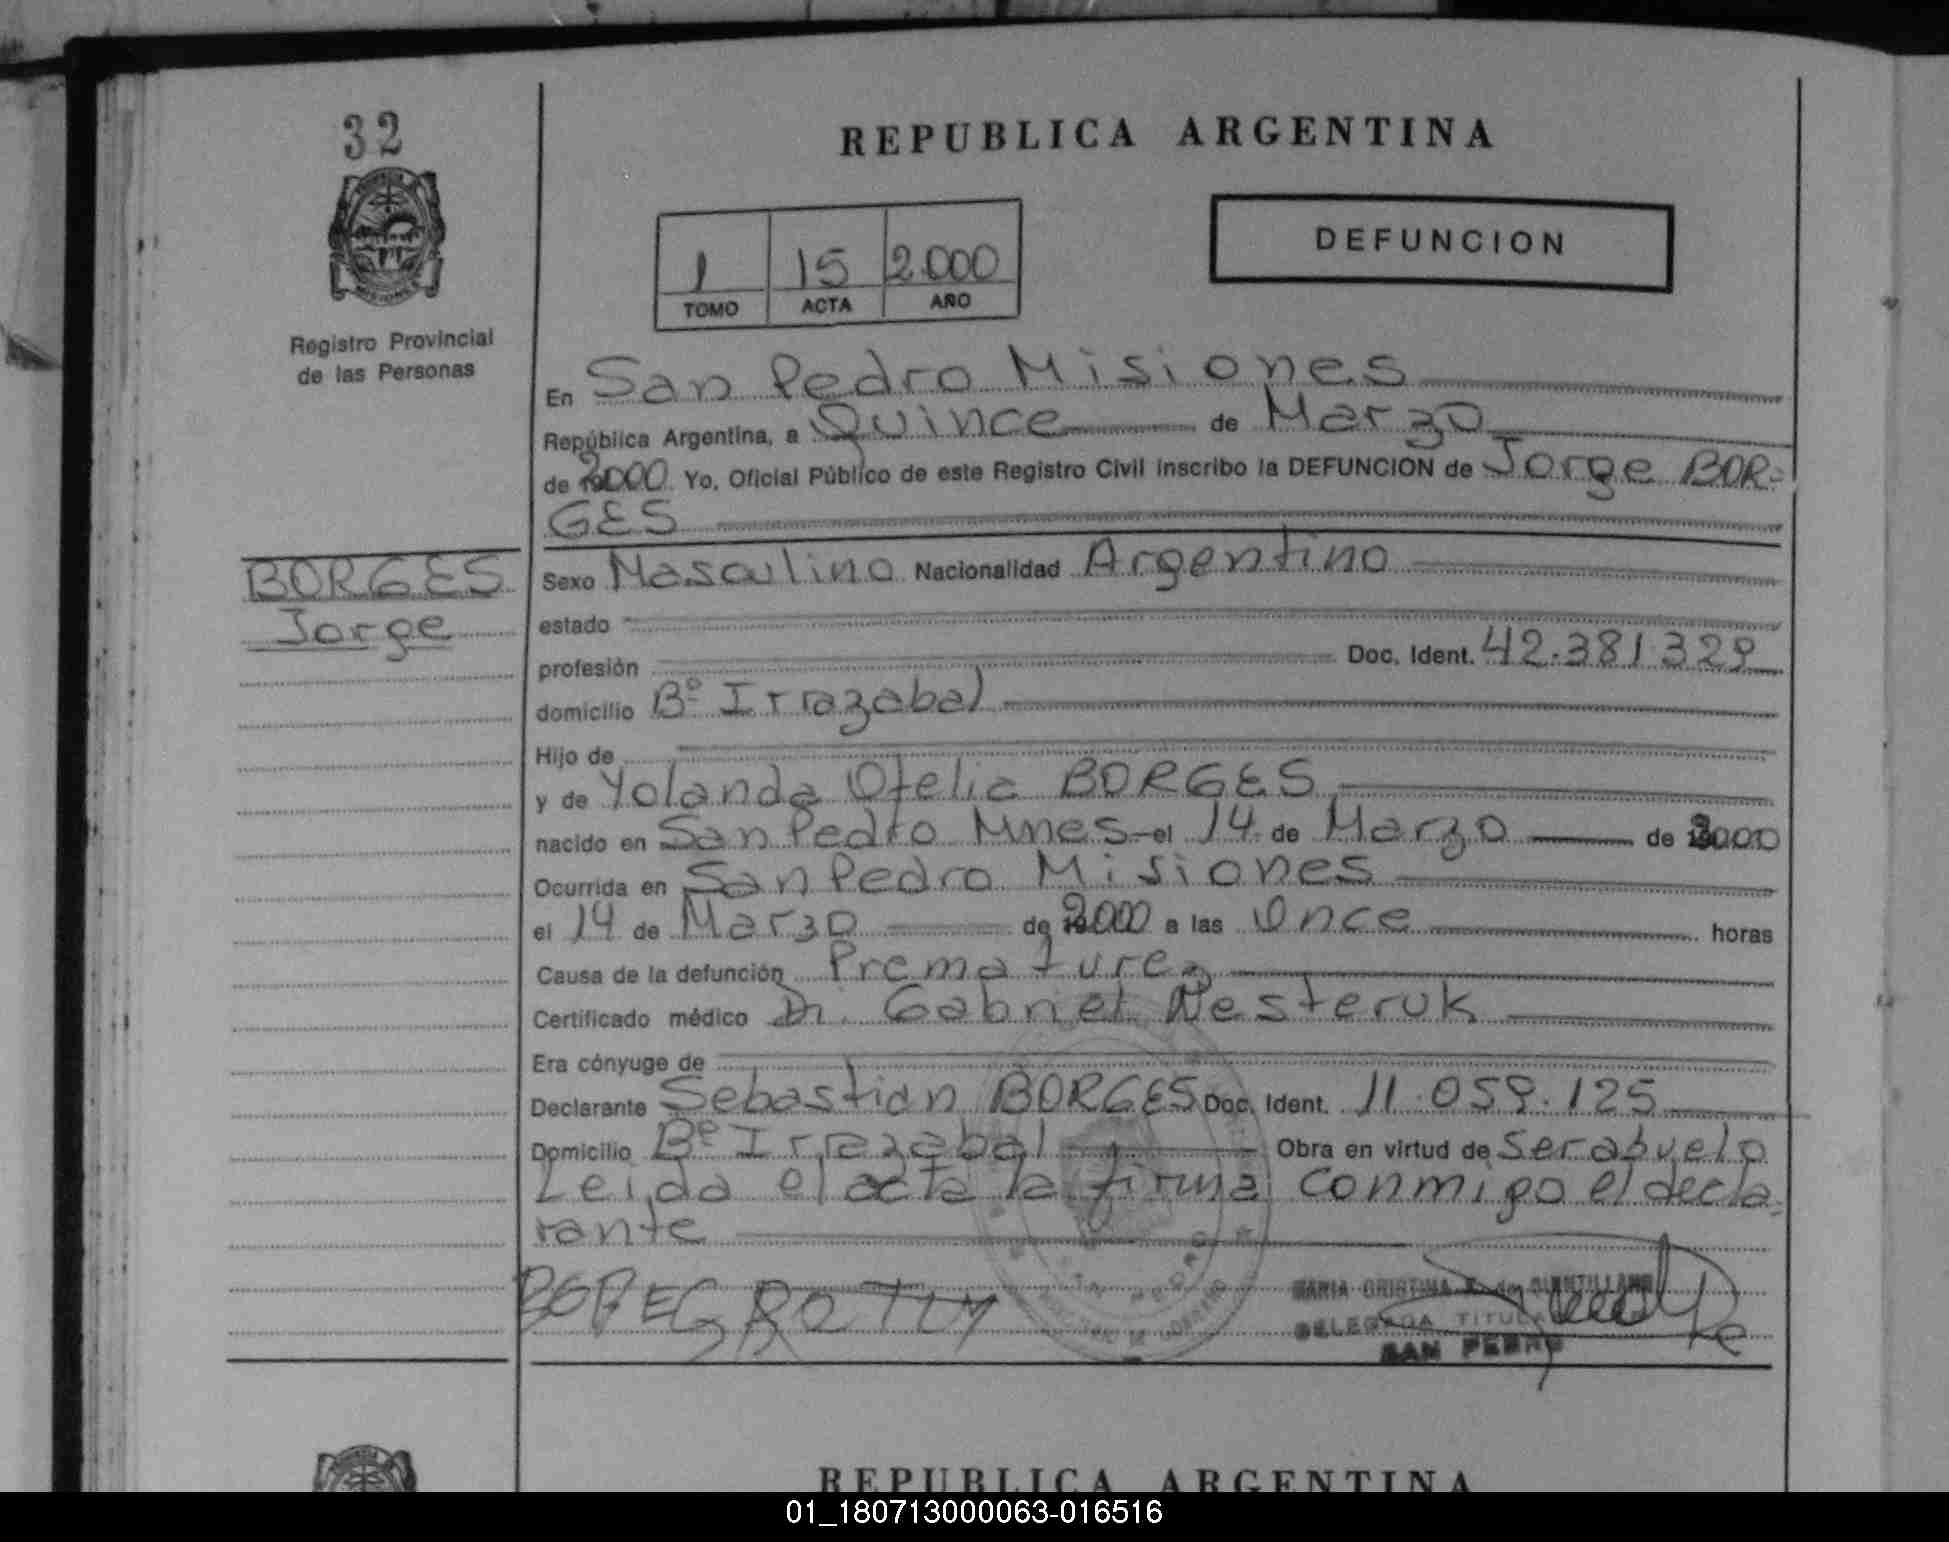 32
REPUBLICA ARGENTINA
DEFUNCION
1 15 2.000
TOMO ACTA AÑO
Registro Provincial
de las Personas
En San Pedro Misiones
República Argentina, a Quince de Marzo
de 2000 Yo, Oficial Público de este Registro Civil inscribo la DEFUNCION de Jorge BOR-
GES
BORGES
Jorge
Sexo Masculino Nacionalidad Argentino
estado
profesión Doc. Ident. 42.381.329
domicilio Bº Irrazabal
Hijo de
y de Yolanda Ofelia BORGES
nacido en San Pedro Mnes el 14 de Marzo de 2000
Ocurrida en San Pedro Misiones
el 14 de Marzo de 2000 a las Once horas
Causa de la defunción Prematurez
Certificado médico Dr. Gabriel Nesteruk
Era cónyuge de
Declarante Sebastian BORGES Doc. Ident. 11.059.125
Domicilio Bº Irrazabal Obra en virtud de Ser abuelo
Leida el acta la firma conmigo el decla-
rante
MARIA CRISTINA
DELEGADA TITULAR
SAN PEDRO
REPUBLICA ARGENTINA
01_180713000063-016516